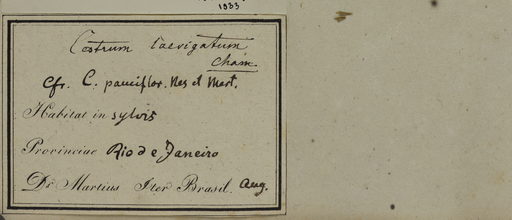 1933
Cestrum laevigatum
Cham.
Cfr. C. pauciflor. Nes et Mart.
Habitat in sylvis
Provinciae Rio de Janeiro
Dr Martius Iter Brasil. Aug.